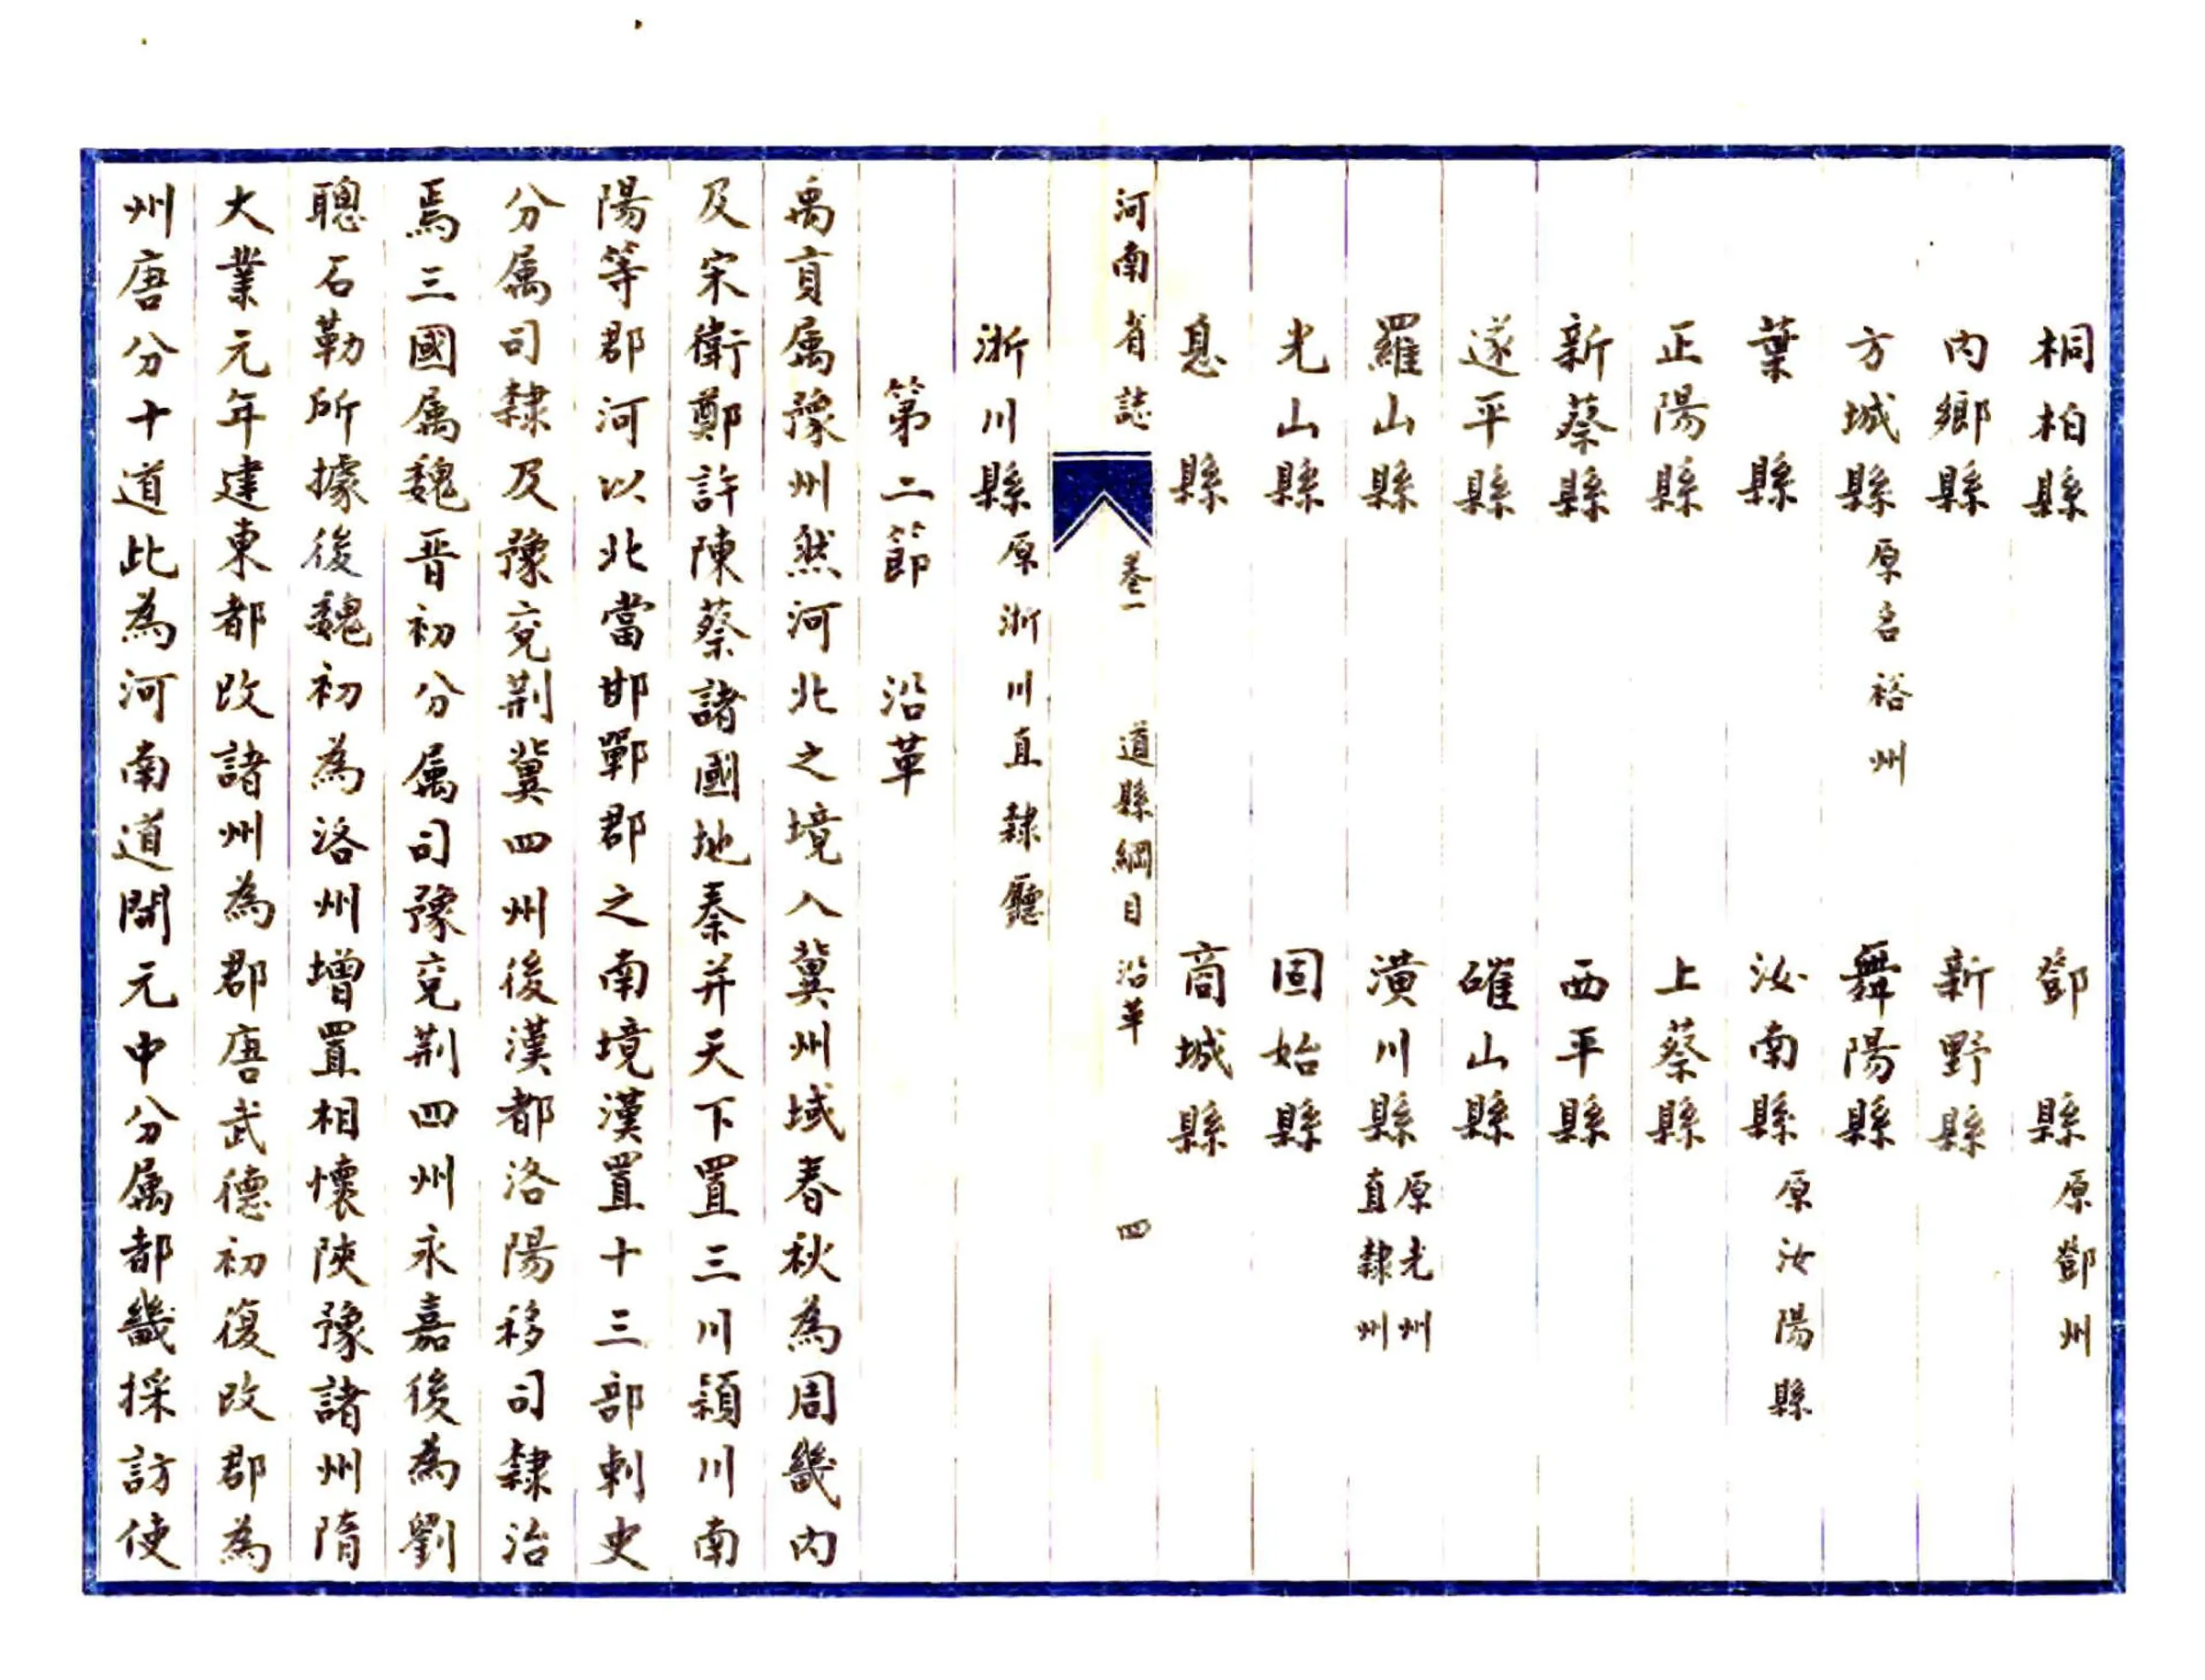 桐柏縣　鄧　縣原鄧州
內鄉縣　新野縣
方城縣原名裕州　舞陽縣
葉　縣　汝南縣原汝陽縣
正陽縣　上蔡縣
新蔡縣　西平縣
遂平縣　確山縣
羅山縣　潢川縣原光州直隸州
光山縣　固始縣
息　縣　商城縣
河南省誌　卷一　道縣綱目沿革　四
淅川縣原淅川直隸廳
第二節　沿革
禹貢属豫州然河北之境入冀州域春秋為周畿內
及宋衛鄭許陳蔡諸國地秦并天下置三川潁川南
陽等郡河以北當邯鄲郡之南境漢置十三部刺史
分属司隸及豫兗荆冀四州後漢都洛陽移司隸治
焉三國属魏晋初分属司豫兗荆四州永嘉後為劉
聰石勒所據後魏初為洛州增置相懷陝豫諸州隋
大業元年建東都改諸州為郡唐武德初復改郡為
州唐分十道此為河南道開元中分属都畿採訪使